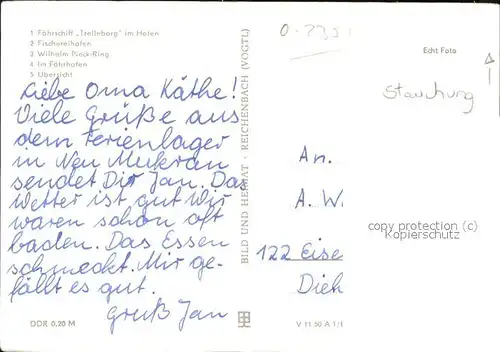 1 Fährschiff „Trelleborg" im Hafen
2 Fischereihafen
3 Wilhelm Pieck-Ring
4 Im Fährhafen
5 Übersicht
Liebe Oma Käthe!
Viele Grüße aus
dem Ferienlager
in Neu Mukran
sendet Dir Jan. Das
Wetter ist gut. Wir
waren schon oft
baden. Das Essen
schmeckt. Mir ge-
fällt es gut.
Gruß Jan
DDR 0,20 M
BILD UND HEIMAT · REICHENBACH (VOGTL)
Echt Foto
Stauchung
An.
A. W.
122 Eise
Dieh
copyright protection (c)
Kopierschutz
V 11 50 A 1/1